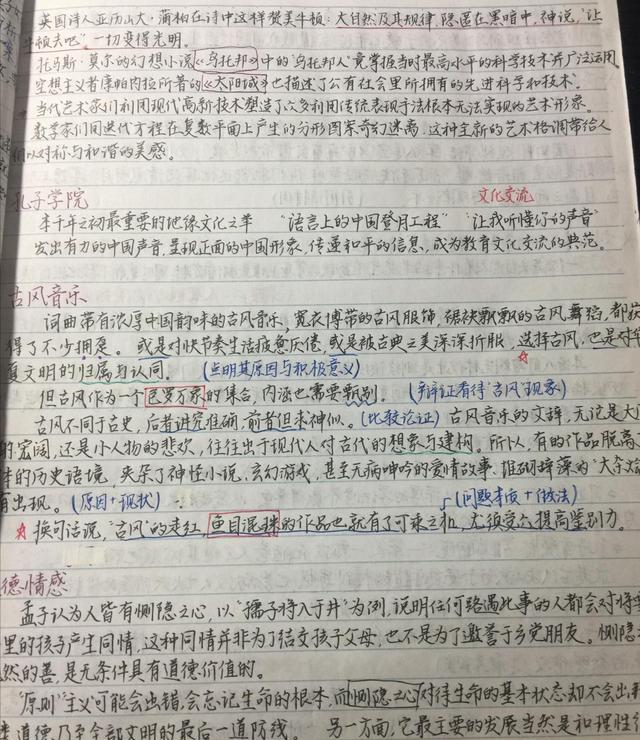 英国诗人亚历山大·蒲柏在诗中这样赞美牛顿:大自然及其规律,隐匿在黑暗中,神说,"让
牛顿去吧"一切变得光明。
托马斯·莫尔的幻想小说《乌托邦》中的"乌托邦人"竟掌握当时最高水平的科学技术并广泛运用
空想主义者康帕内拉所著的《太阳城》也描述了公有社会里所拥有的先进科学和技术。
当代艺术家们利用现代高新技术塑造了六多利用传统表现手法根本无法实现的艺术形象。
数学家们同迭代方程在复数平面上产生的分形图案奇幻迷离,这种全新的艺术格调带给人
们以对称与和谐的美感。
孔子学院
文化交流
本千年之初最重要的地缘文化之举 "语言上的中国登月工程" "让我听懂你的声音"
发出有力的中国声音,呈现正面的中国形象,传递和平的信息,成为教育文化交流的典范。
古风音乐
词曲带有浓厚中国韵味的古风音乐,宽衣博带的古风服饰,裾袂飘飘的古风舞蹈,都获
得了不少拥趸。或是对快节奏生活疲惫厌倦,或是被古典之美深深折服,选择古风,也是对华
夏文明的归属与认同。(点明其原因与积极意义)
但古风作为一个包罗万象的集合,内涵也需要甄别。(辩证看待"古风"现象)
古风不同于古史,后者讲究准确,前者但求神似。(比较论证)古风音乐的文辞,无论是大
的宏阔,还是小人物的悲欢,往往出于现代人对古代的想象与建构。所以,有的作品脱离
的历史语境,夹杂了神怪小说、玄幻游戏,甚至无病呻吟的爱情故事、堆砌辞藻的"大杂烩
有出现。(原因+现状)
(问题本质+做法)
☆换句话说,"古风"的走红,鱼目混珠的作品也就有了可乘之机,尤须受众提高鉴别力。
德情感
孟子认为人皆有恻隐之心,以"孺子将入于井"为例,说明任何路遇此事的人都会对将
里的孩子产生同情,这种同情并非为了结交孩子父母,也不是为了邀誉于乡党朋友。恻隐
然的善,是无条件具有道德价值的。
"原则"主义可能会出错,会忘记生命的根本,而恻隐之心对待生命的基本状态却不会出
类道德乃至全部文明的最后一道防线。 另一方面,它最主要的发展当然是和理性